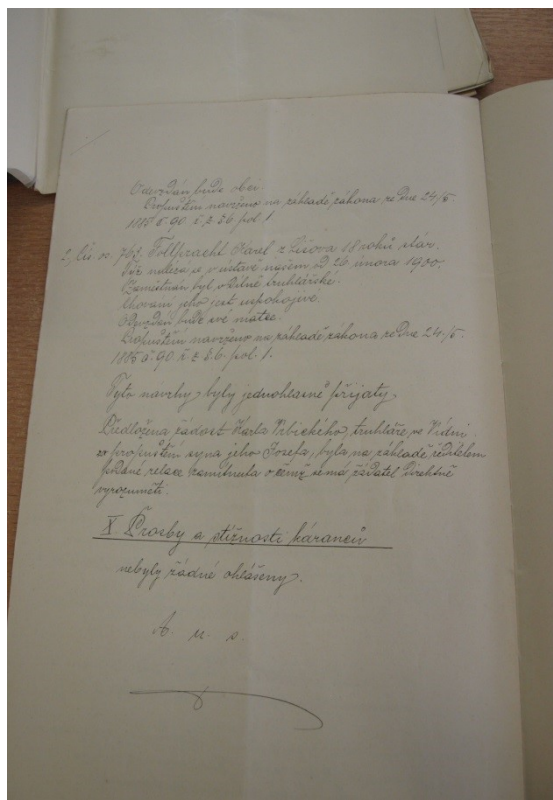 Odevzdán bude obci.
Propuštění navrženo na základě zákona ze dne 24/5.
1885 č. 90. ř. z. § 6 pol. 1.
2, lis. n. 762. Follprecht Karel z Lišova 18 roků stár.
Týž nalézá se v ústavě našem od 26 února 1900.
Zaměstnán byl v dílně truhlářské.
Chování jeho jest uspokojivé.
Odevzdán bude své matce.
Propuštění navrženo na základě zákona ze dne 24/5.
1885 č. 90. ř. z. § 6. pol. 1.
Tyto navrhy byly jednohlasně přijaty.
Předložena žádost Karla Vrbického, truhláře ve Vídni
za propuštění syna jeho Josefa, byla na základě ředitelem
podané relace zamítnuta o čemž se má žadatel direktně
vyrozuměti.
X Prosby a stížnosti káranců
nebyly žádné ohlášeny.
A. u. s.